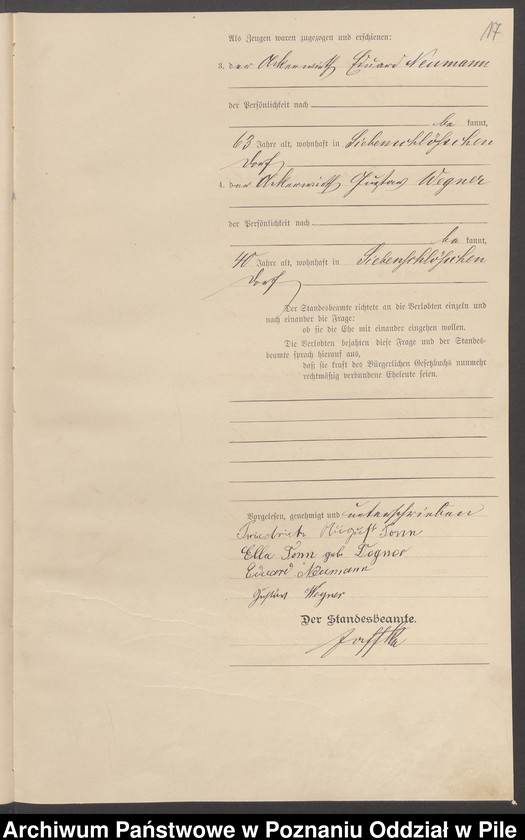 17
Als Zeugen waren zugezogen und erschienen:
3. der Ackerwirth Eduard Neumann
der Persönlichkeit nach
be kannt,
63 Jahre alt, wohnhaft in Siebenschlößchen
Dorf
4. der Ackerwirth Gustav Wegner
der Persönlichkeit nach
be kannt,
40 Jahre alt, wohnhaft in Siebenschlößchen
Dorf
Der Standesbeamte richtete an die Verlobten einzeln und
nach einander die Frage:
ob sie die Ehe mit einander eingehen wollen.
Die Verlobten bejahten diese Frage und der Standes-
beamte sprach hierauf aus,
daß sie kraft des Bürgerlichen Gesetzbuchs nunmehr
rechtmäßig verbundene Eheleute seien.
Vorgelesen, genehmigt und unterschrieben
Friedrich August Tonn
Ella Tonn geb.
Eduard Neumann
Gustav Wegner
Der Standesbeamte.
Archiwum Państwowe w Poznaniu Oddział w Pile